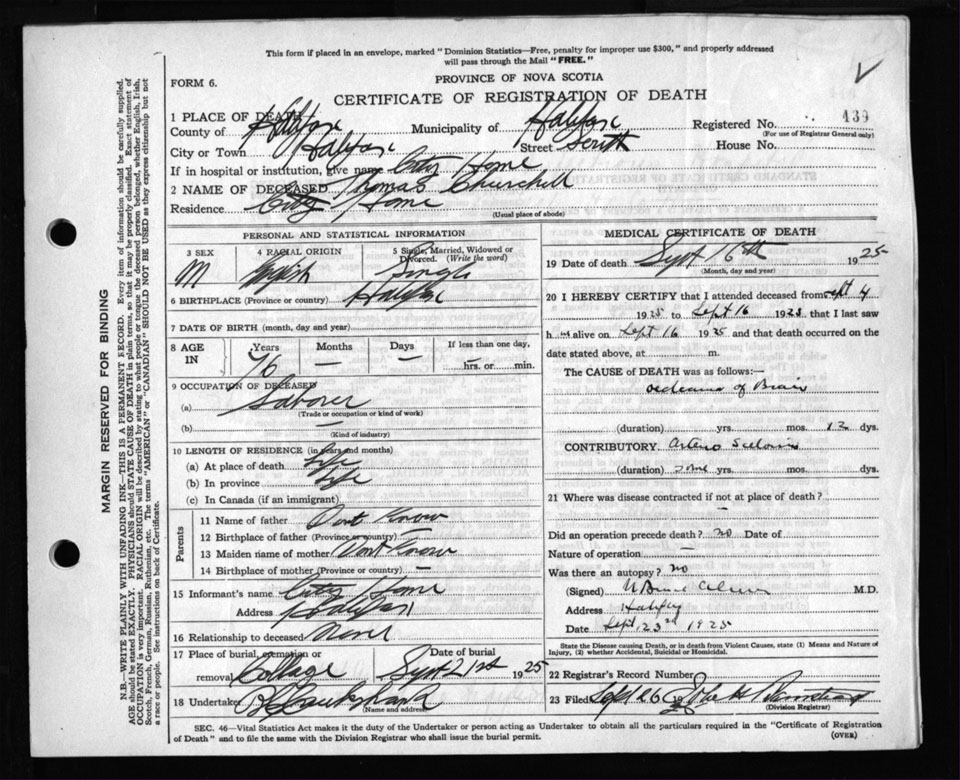 This form if placed in an envelope, marked "Dominion Statistics—Free, penalty for improper use $300," and properly addressed
will pass through the Mail "FREE."
FORM 6.
PROVINCE OF NOVA SCOTIA
CERTIFICATE OF REGISTRATION OF DEATH
1 PLACE OF DEATH
County of Halifax Municipality of Halifax Registered No. 439
(For use of Registrar General only)
City or Town Halifax Street South House No.
If in hospital or institution, give name City Home
2 NAME OF DECEASED Thomas Churchill
Residence City Home
(Usual place of abode)
PERSONAL AND STATISTICAL INFORMATION
3 SEX 4 RACIAL ORIGIN 5 Single, Married, Widowed or Divorced. (Write the word)
M English Single
6 BIRTHPLACE (Province or country) Halifax
7 DATE OF BIRTH (month, day and year)
8 AGE IN Years Months Days If less than one day,
76 — — hrs. or min.
9 OCCUPATION OF DECEASED
(a) Laborer
(Trade or occupation or kind of work)
(b) —
(Kind of industry)
10 LENGTH OF RESIDENCE (in years and months)
(a) At place of death Life
(b) In province Life
(c) In Canada (if an immigrant)
Parents
11 Name of father Dont Know
12 Birthplace of father (Province or country) —
13 Maiden name of mother Dont Know
14 Birthplace of mother (Province or country) —
15 Informant's name City Home
Address Halifax
16 Relationship to deceased None
17 Place of burial, cremation or removal Date of burial
College Sept 21st 1925
18 Undertaker
(Name and address)
MEDICAL CERTIFICATE OF DEATH
19 Date of death Sept 16th 1925
(Month, day and year)
20 I HEREBY CERTIFY that I attended deceased from Sept 4
1925 to Sept 16 1925 that I last saw
h im alive on Sept 16 1925 and that death occurred on the
date stated above, at m.
The CAUSE of DEATH was as follows:—
oedema of Brain
(duration) yrs. mos. 12 dys.
CONTRIBUTORY Arterio
(duration) some yrs. mos. dys.
21 Where was disease contracted if not at place of death?
—
Did an operation precede death? no Date of
Nature of operation —
Was there an autopsy? no
(Signed) M.D.
Address Halifax
Date Sept 23rd 1925
State the Disease causing Death, or in death from Violent Causes, state (1) Means and Nature of Injury, (2) whether Accidental, Suicidal or Homicidal.
22 Registrar's Record Number
23 Filed Sept 26 19
(Division Registrar)
SEC. 46—Vital Statistics Act makes it the duty of the Undertaker or person acting as Undertaker to obtain all the particulars required in the "Certificate of Registration
of Death" and to file the same with the Division Registrar who shall issue the burial permit.
(OVER)
MARGIN RESERVED FOR BINDING
N.B.—WRITE PLAINLY WITH UNFADING INK—THIS IS A PERMANENT RECORD. Every item of information should be carefully supplied.
AGE should be stated EXACTLY. PHYSICIANS should STATE CAUSE OF DEATH in plain terms, so that it may be properly classified. Exact statement of
OCCUPATION is very important. RACIAL ORIGIN will be described by stating to what people or tongue the deceased person belonged, whether English, Irish,
Scotch, French, German, Russian, Ruthenian, etc. The terms "AMERICAN" or "CANADIAN" SHOULD NOT BE USED as they express citizenship but not
a race or people. See instructions on back of Certificate.